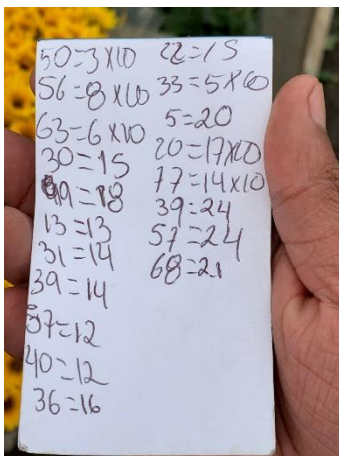 50=3x10
56=8x10
63=6x10
30=15
49=18
13=13
31=14
39=14
37=12
40=12
36=16
22=15
33=5x60
5=20
20=17x10
77=14x10
39=24
57=24
68=21